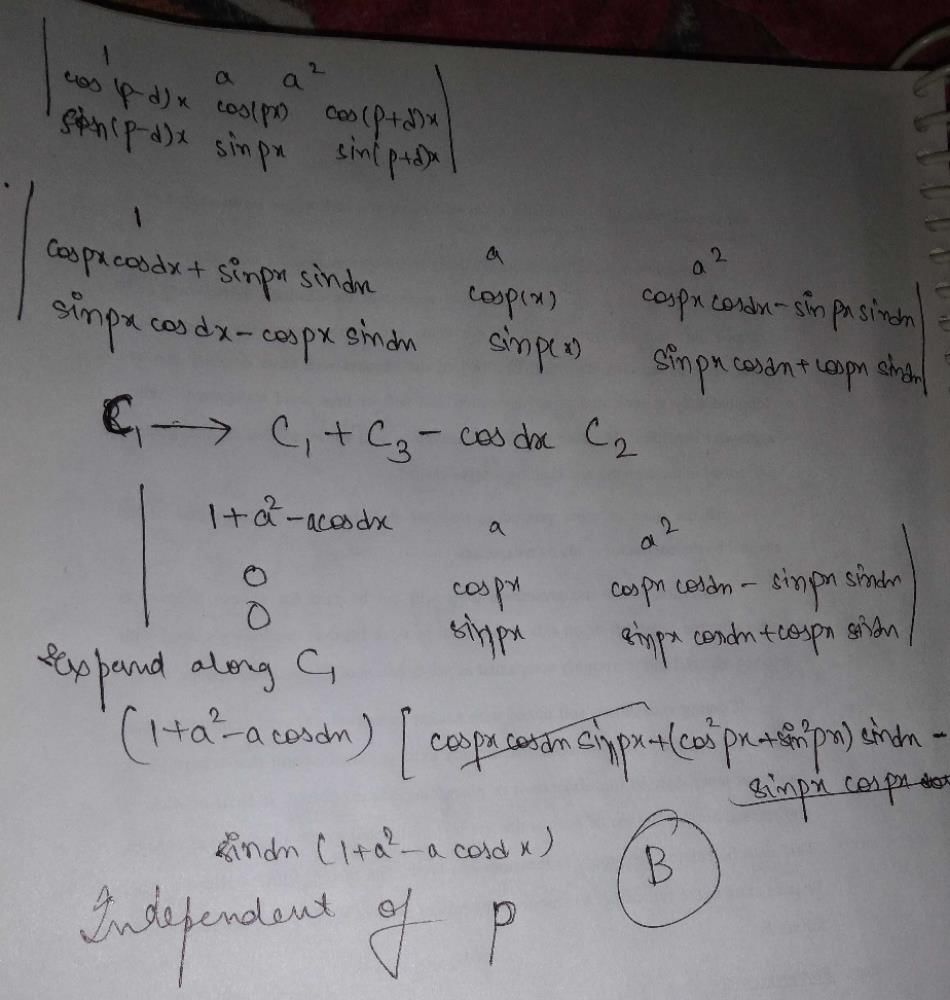 1 a a²
cos(p-d)x cos(px) cos(p+d)x
sin(p-d)x sinpx sin(p+d)x
1 a a²
cospxcosdx + sinpx sindx cosp(x) cospx cosdx - sinpx sindx
sinpx cosdx - cospx sindx sinp(x) sinpx cosdx + cospx sindx
C₁ → C₁ + C₃ - cosdx C₂
1+a²-acosdx a a²
0 cospx cospx cosdx - sinpx sindx
0 sinpx sinpx cosdx + cospx sindx
Expand along C₁
(1+a²-acosdx) [cospx cosdx sinpx + (cos²px + sin²px) sindx -
sinpx cospx cos
sindx (1+a²-a cosdx)
B
Independent of p